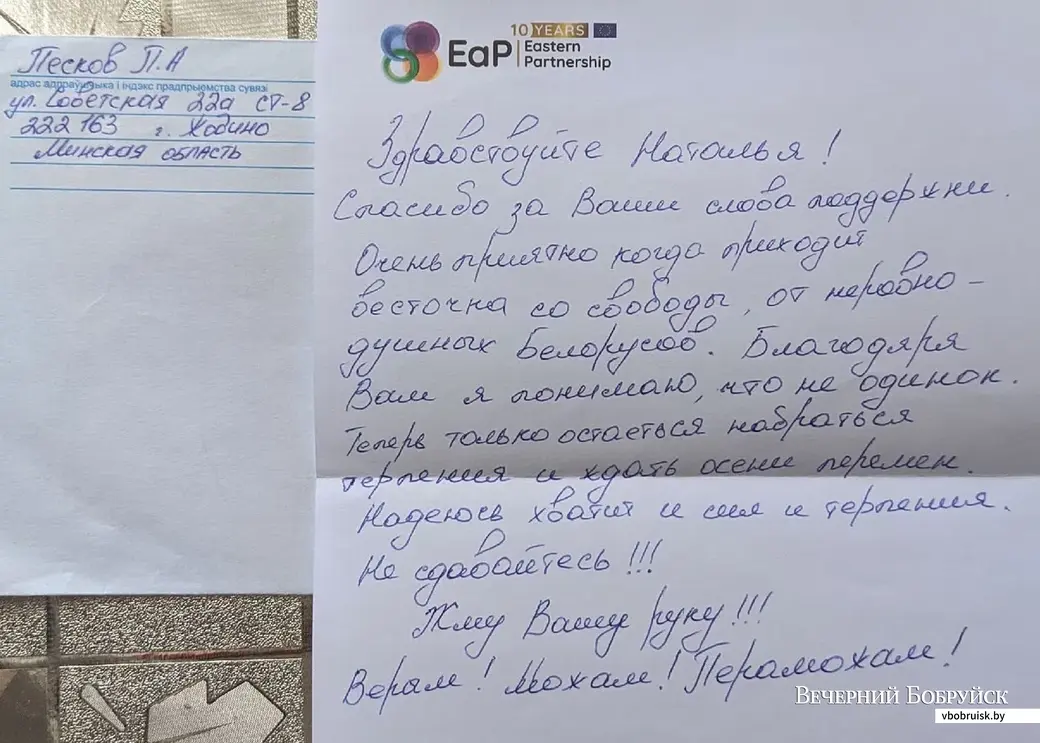 Песков П.А
адрас адпраўшчыка і індэкс прадпрыемства сувязі
ул. Советская 22а СТ-8
222163 г. Жодино
Минская область
10 YEARS
EaP
Eastern
Partnership
Здравствуйте Наталья!
Спасибо за Ваши слова поддержки.
Очень приятно когда приходит
весточка со свободы, от неравно-
душных Белорусов. Благодаря
Вам я понимаю, что не одинок.
Теперь только остаеться набраться
терпения и ждать осени перемен.
Надеюсь хватит и сил и терпения.
Не сдавайтесь!!!
Жму Вашу руку!!!
Верам! Можам! Пераможам!
Вечерний Бобруйск
vbobruisk.by